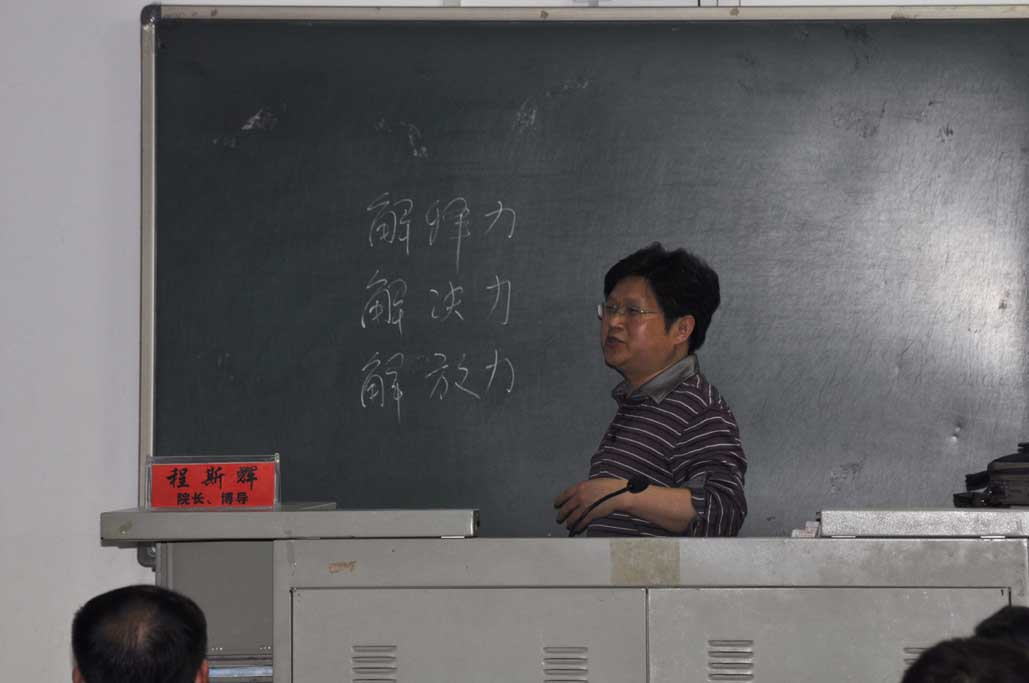 解释力
解决力
解放力
程斯辉
院长、博导